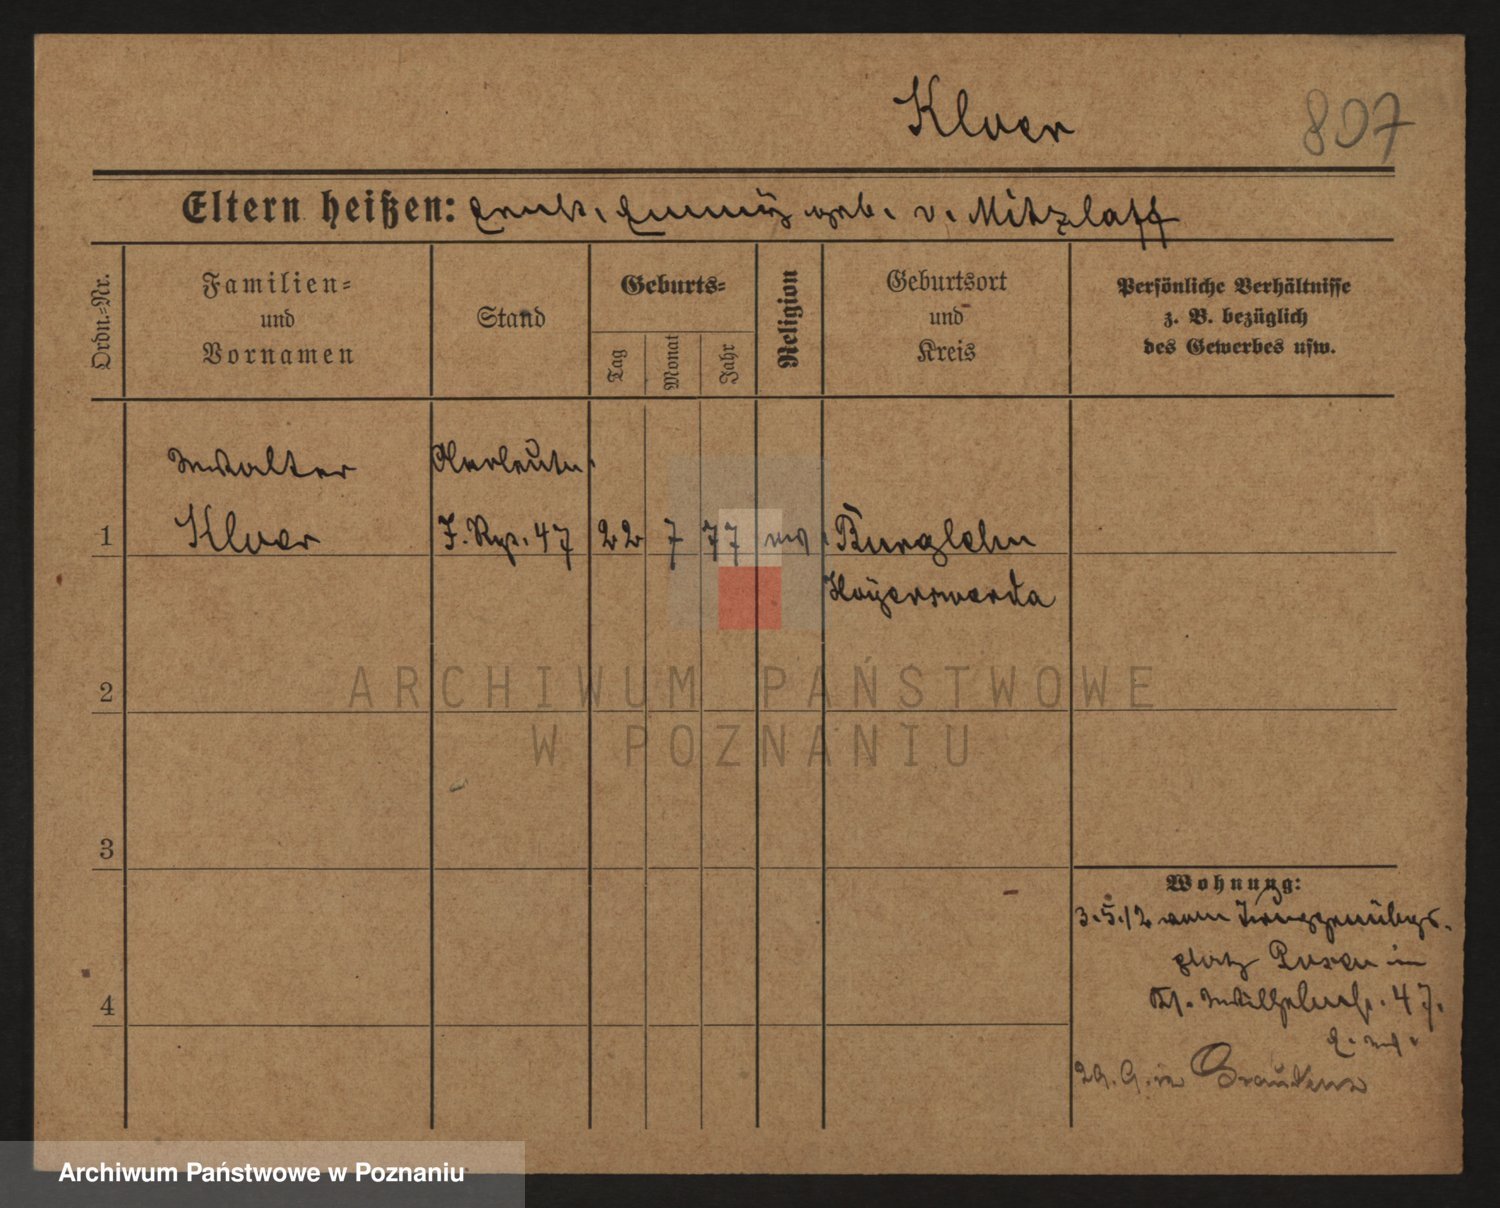 Kloer
807
Eltern heißen: Ernst, Emmy geb. v. Mitzlaff
Ordn.=Nr.
Familien=
und
Vornamen
Stand
Geburts=
Tag
Monat
Jahr
Religion
Geburtsort
und
Kreis
Persönliche Verhältnisse
z. B. bezüglich
des Gewerbes usw.
Walter
Oberleutn.
1
Kloer
J. Rgt. 47
22
7
77
ev.
Burglehn
Hoyerswerda
2
3
4
Wohnung:
3.5.12 vom Truppenübgs.
platz Posen in
Wilhelmstr. 47.
29. 9. in Graudenz
ARCHIWUM PAŃSTWOWE
W POZNANIU
Archiwum Państwowe w Poznaniu